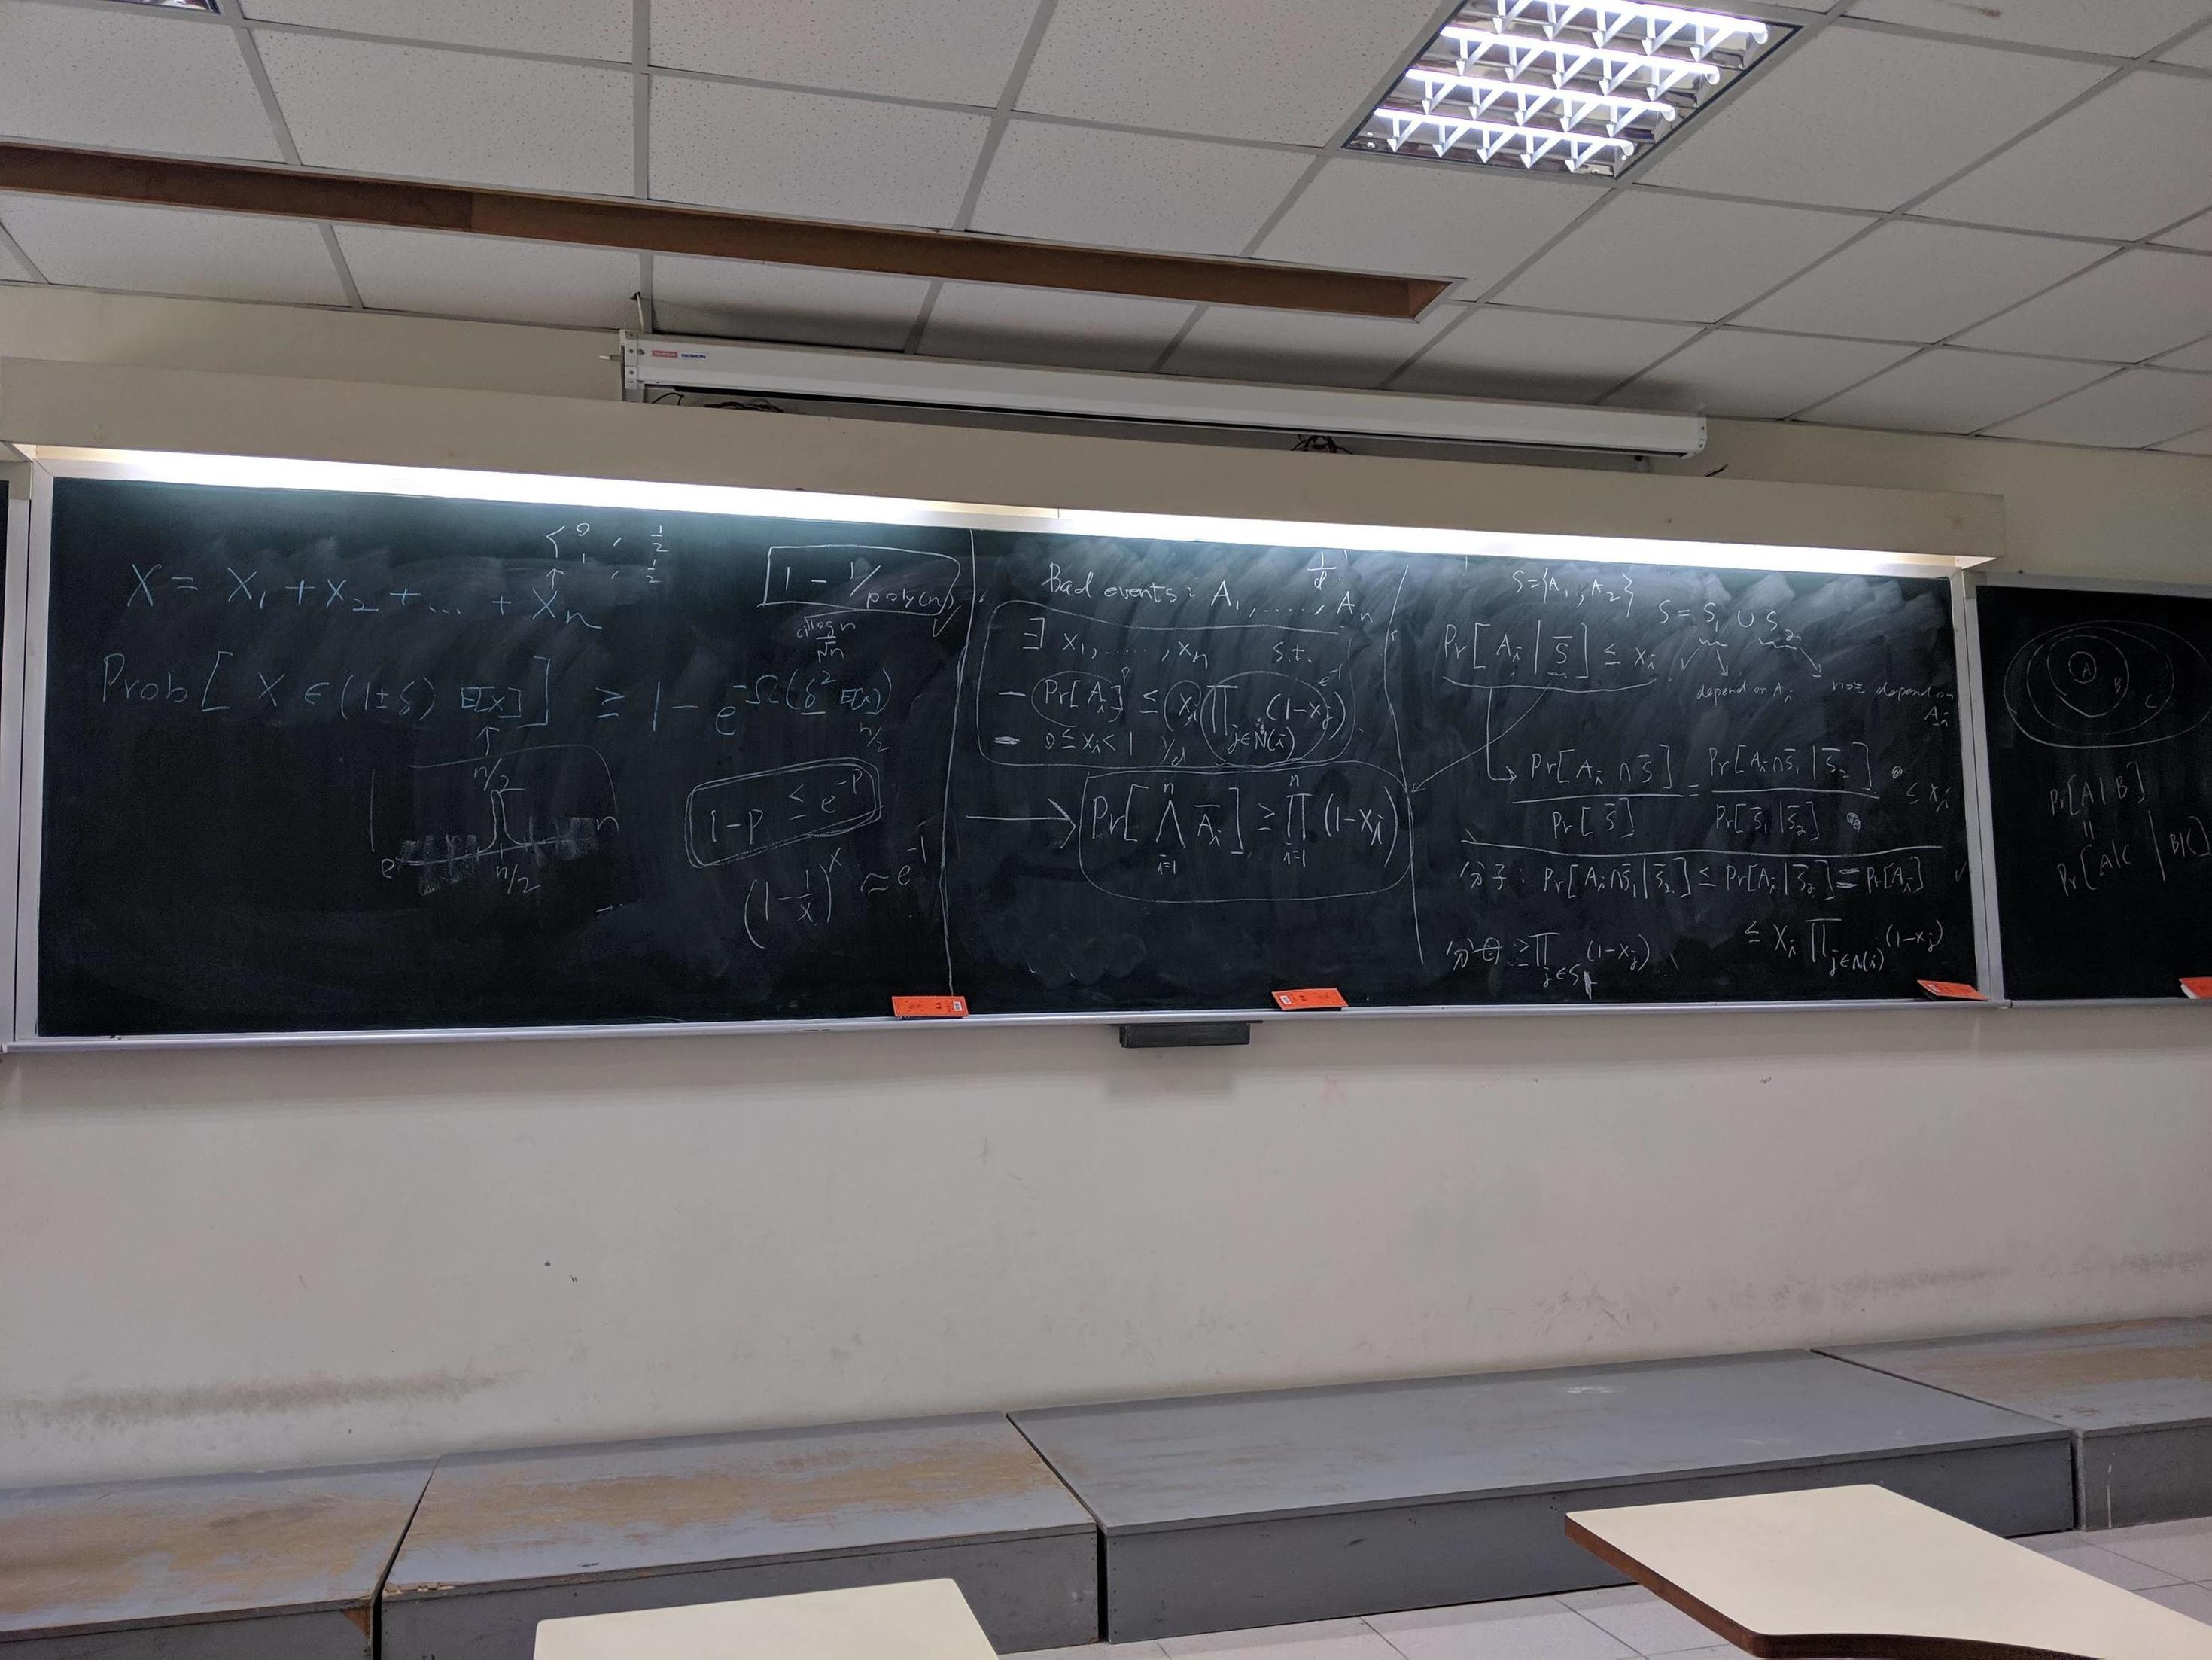 0 , 1/2
1 , 1/2
X = X₁ + X₂ + ... + Xₙ
1 - 1/poly(n)
√log n / √n
Prob[ X ∈ (1±δ) E[X] ] ≥ 1 - e^{-Ω(δ² E[X])}
n/2
n/2
1-p ≤ e^{-p}
n/2
n
(1 - 1/x)^x ≈ e^{-1}
Bad events: A₁, ......, Aₙ
1/d
∃ x₁, ......, xₙ s.t.
- Pr[Aᵢ] ≤ xᵢ ∏_{j∈N(i)} (1-xⱼ)
p
e^{-1}
- 0 ≤ xᵢ < 1
1/d
→ Pr[ ⋀_{i=1}^{n} A̅ᵢ ] ≥ ∏_{i=1}^{n} (1-xᵢ)
S={A₁, A₂}
S = S₁ ∪ S₂
Pr[ Aᵢ | S̅ ] ≤ xᵢ
depend on Aᵢ
not depend on Aᵢ
Pr[Aᵢ ∩ S̅] / Pr[S̅] = Pr[Aᵢ ∩ S̅₁ | S̅₂] / Pr[S̅₁ | S̅₂] ≤ xᵢ
分子: Pr[Aᵢ ∩ S̅₁ | S̅₂] ≤ Pr[Aᵢ | S̅₂] = Pr[Aᵢ]
≤ xᵢ ∏_{j∈N(i)} (1-xⱼ)
分母 ≥ ∏_{j∈S₁} (1-xⱼ)
A
B
C
Pr[A|B]
=
Pr[A|C | B|C]